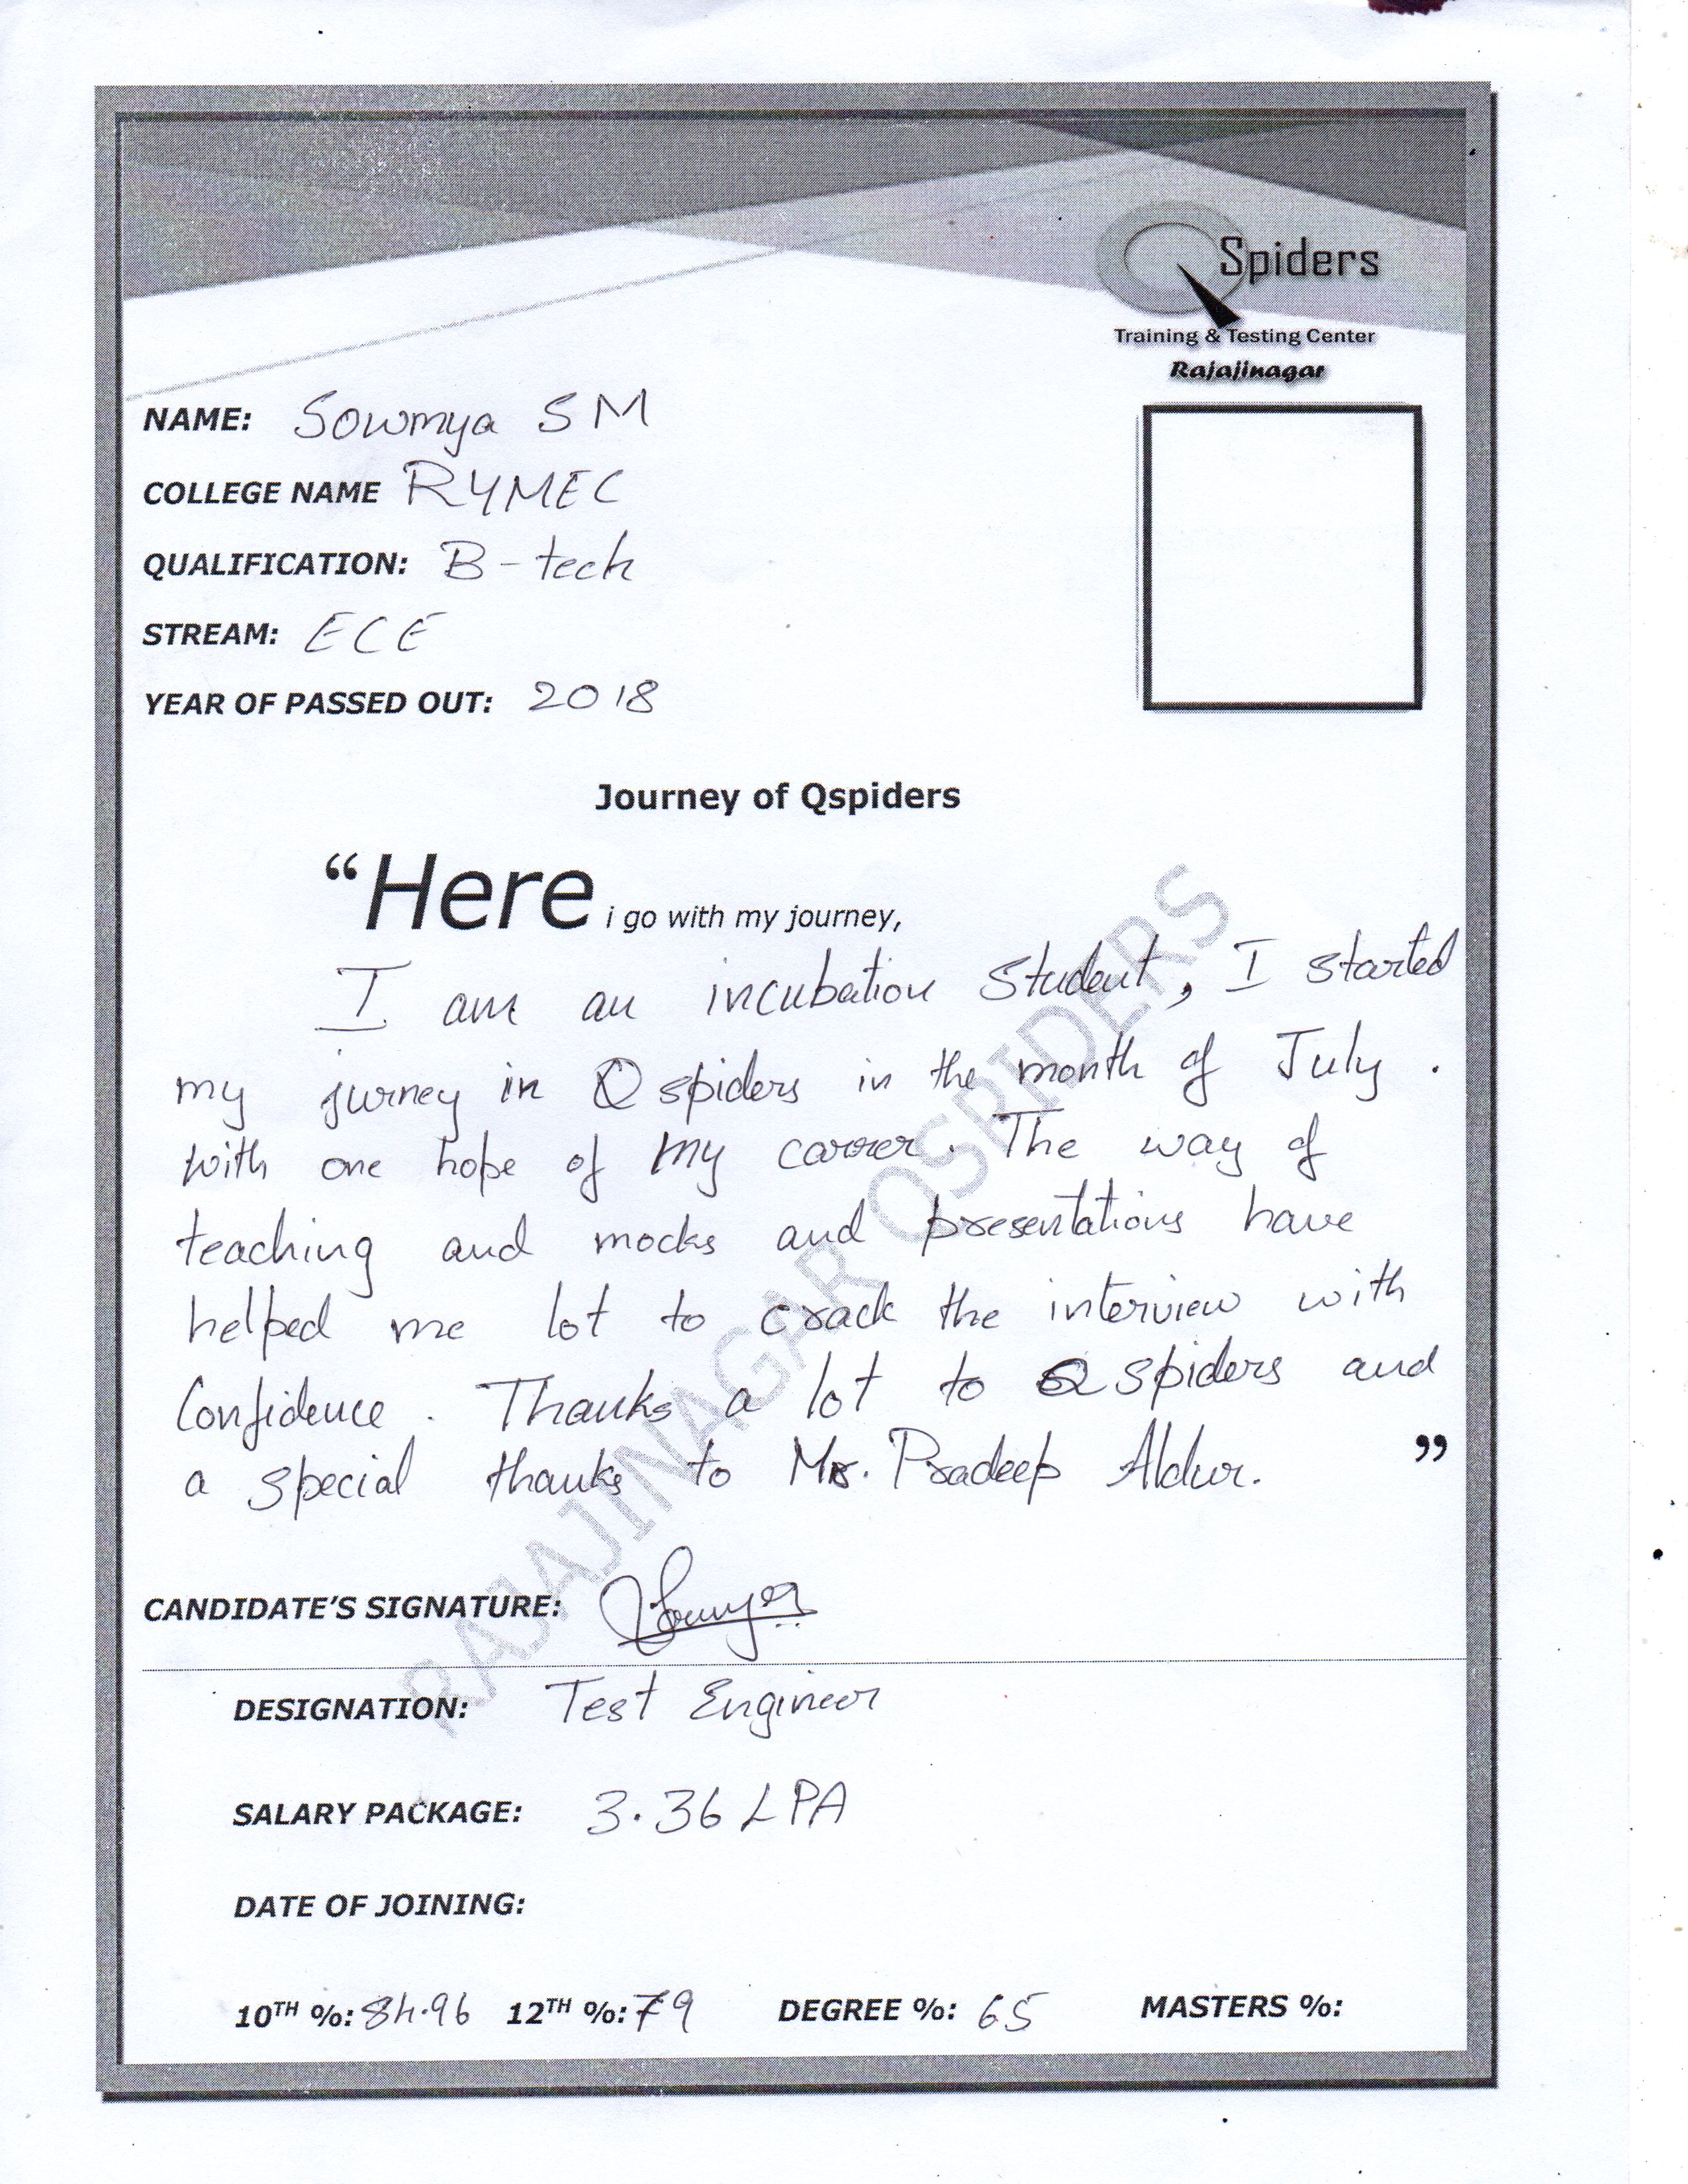 QSpiders
Training & Testing Center
Rajajinagar
NAME: Sowmya S M
COLLEGE NAME RYMEC
QUALIFICATION: B-tech
STREAM: ECE
YEAR OF PASSED OUT: 2018
Journey of Qspiders
“Here i go with my journey,
I am an incubation Student, I started
my jurney in Qspiders in the month of July.
with one hope of my carrer. The way of
teaching and mocks and presentations have
helped me lot to crack the interview with
Confidence. Thanks a lot to Qspiders and
a special thanks to Mr. Pradeep Aldur. ”
RAJAJINAGAR QSPIDERS
CANDIDATE’S SIGNATURE: Sowmya
DESIGNATION: Test Engineer
SALARY PACKAGE: 3.36 LPA
DATE OF JOINING:
10TH %: 84.96 12TH %: 79 DEGREE %: 65 MASTERS %: